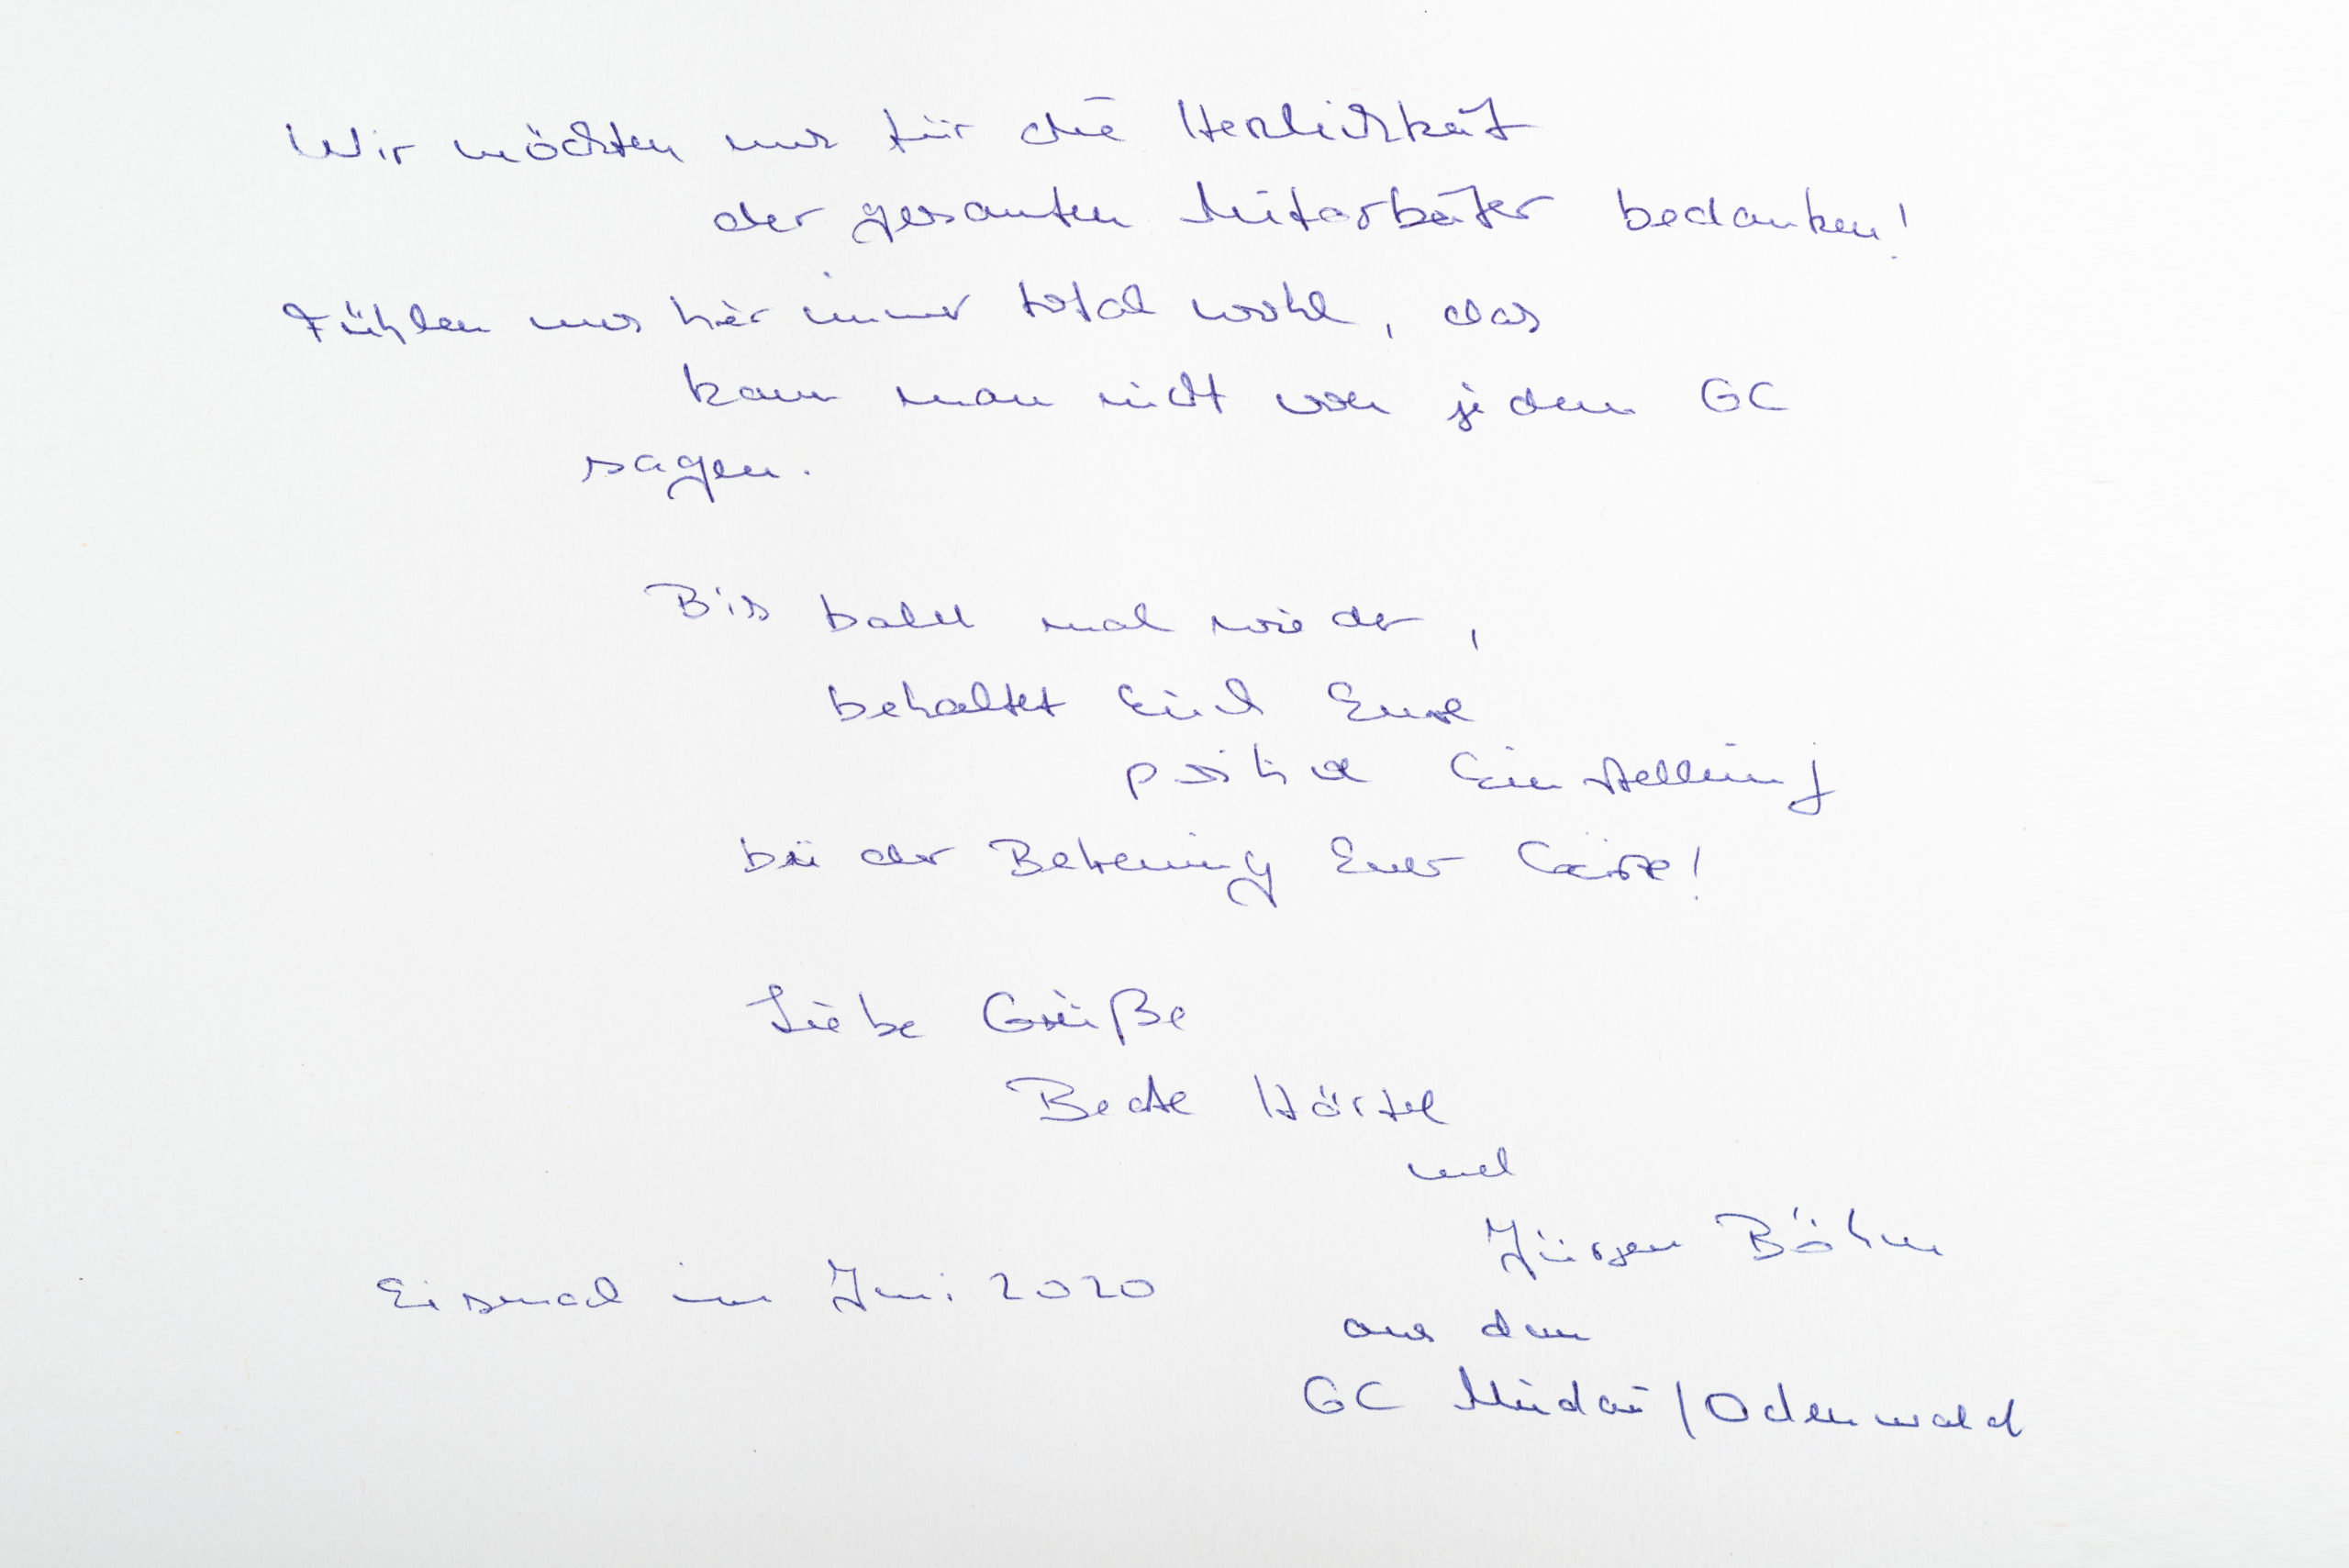 Wir möchten uns für die Herzlichkeit
der gesamten Mitarbeiter bedanken!
Fühlen uns hier immer total wohl, das
kann man nicht von jedem GC
sagen.
Bis bald mal wieder,
behaltet Euch Eure
positive Einstellung
bei der Betreuung Euer Gäste!
Liebe Grüße
Beate Härtel
und
Jürgen Böhm
Eismal im Juni 2020
aus dem
GC Mudau/Odenwald